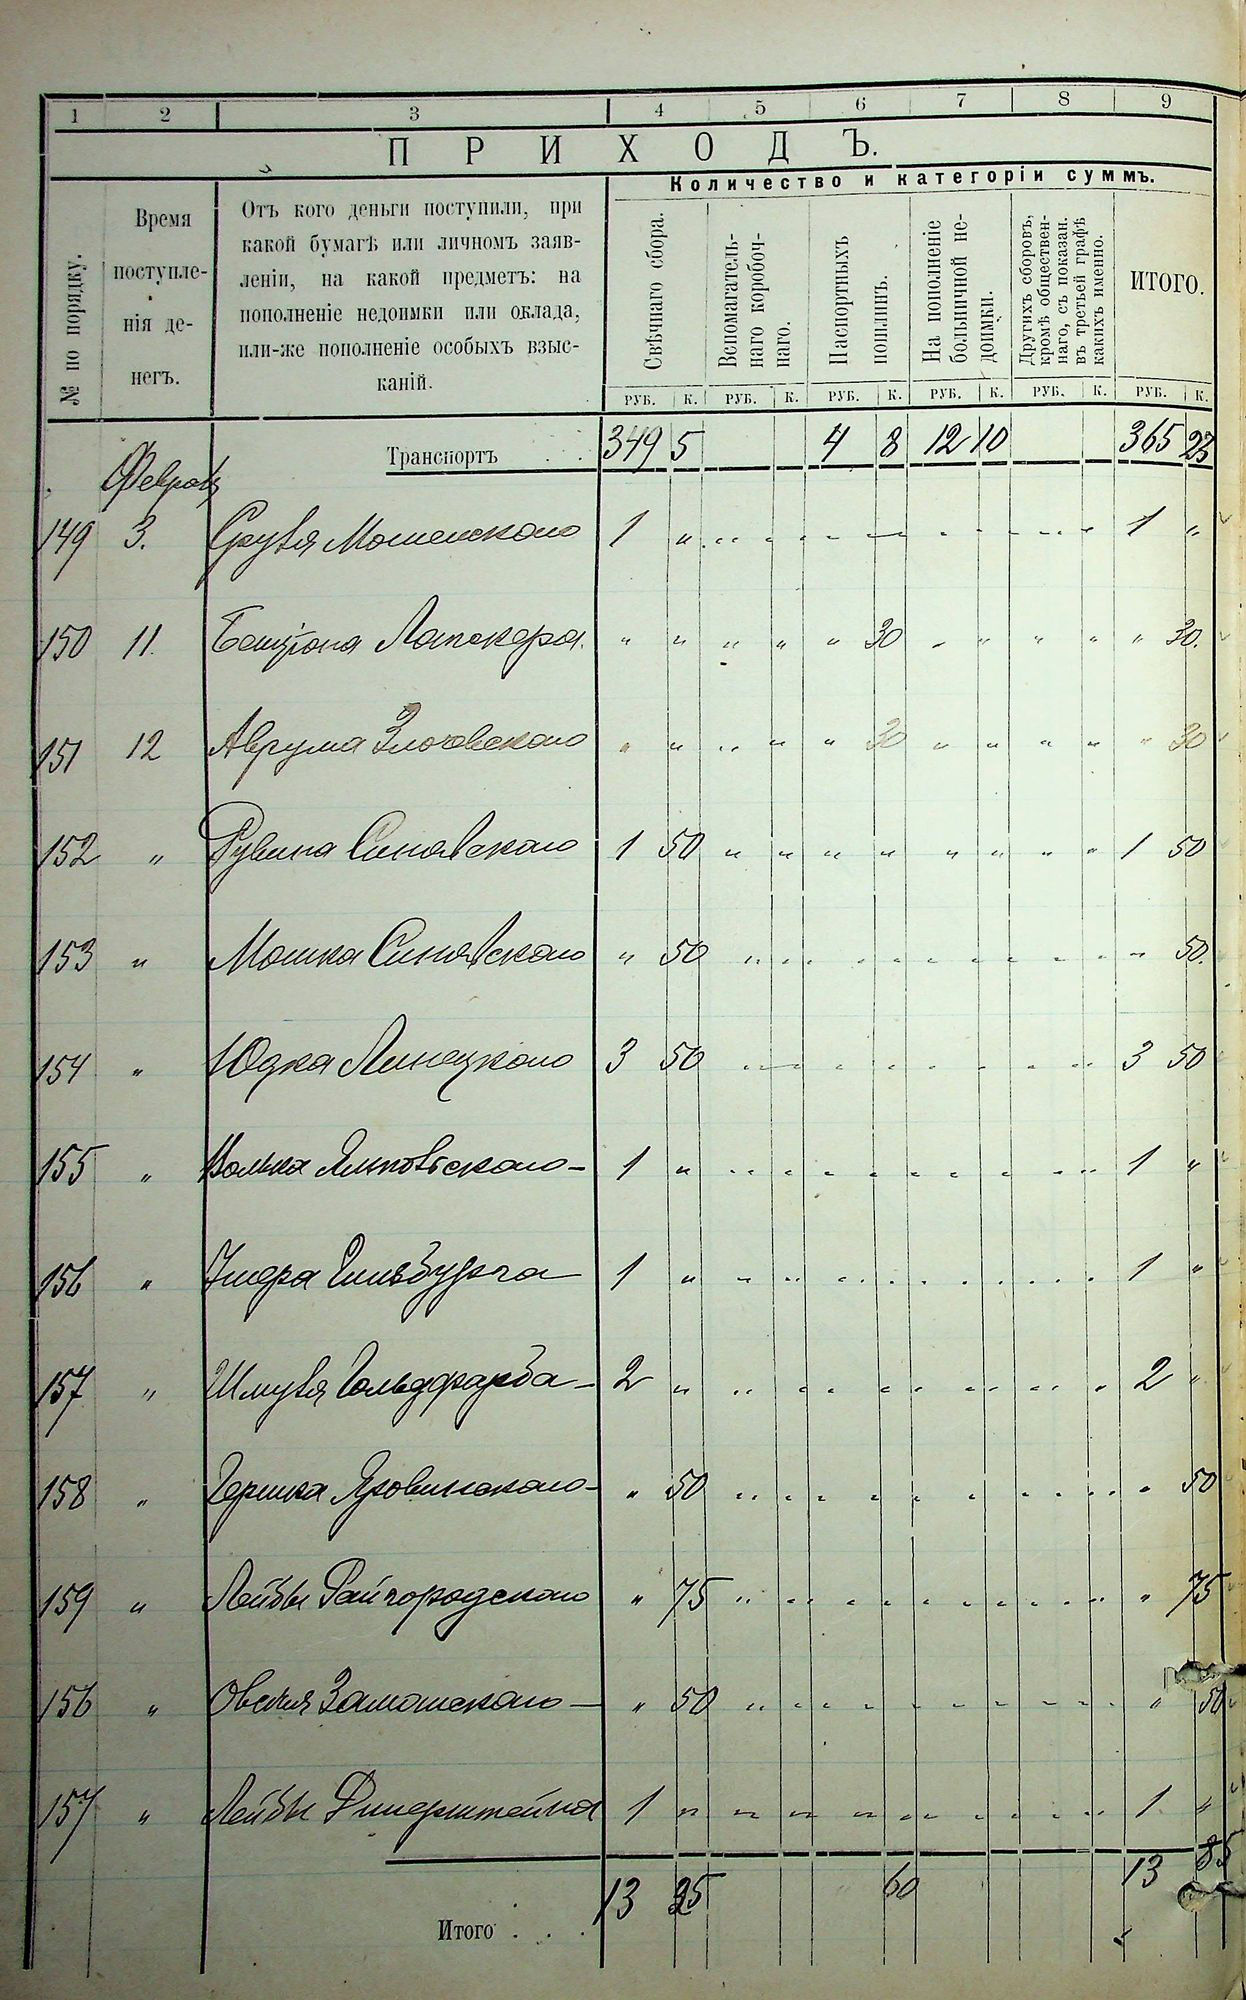 1 2 3 4 5 6 7 8 9
ПРИХОДЪ.
Количество и категоріи суммъ.
№ по порядку.
Время поступле-
нія де-
негъ.
Отъ кого деньги поступили, при
какой бумагѣ или личномъ заяв-
леніи, на какой предметъ: на
пополненіе недоимки или оклада,
или-же пополненіе особыхъ взыс-
каній.
Свѣчнаго сбора.
Вспомагатель-
наго коробоч-
наго.
Паспортныхъ
пошлинъ.
На пополненіе
больничной не-
доимки.
Другихъ сборовъ,
кромѣ обществен-
наго, съ показан.
въ третьей графѣ
какихъ именно.
ИТОГО.
РУБ. К. РУБ. К. РУБ. К. РУБ. К. РУБ. К. РУБ. К.
Транспортъ . . . 349 5 4 8 12 10 365 23
149 3. Сруля 1 " 1 "
150 11. Бенціона Лапскера. " " " " " 30 " " " " " 30.
151 12 Аврума Злотовского " " " " " 30 " " " " " 30
152 " Рувина Синявского 1 50 " " " " " " " " 1 50
153 " Мошка Синявского " 50 " 50.
154 " Юдка Линецкого 3 50 3 50
155 " Волька 1 " 1 "
156 " Гинзбурга 1 " 1 "
157 " Шмуля Гольдфарба 2 " 2 "
158 " Гершка Яровинского " 50 " 50
159 " Лейбы Райгородского " 75 " 75
156 " Овсея " 50 " 50
157 " Лейбы 1 " 1 "
Итого . . . 13 25 60 13 85